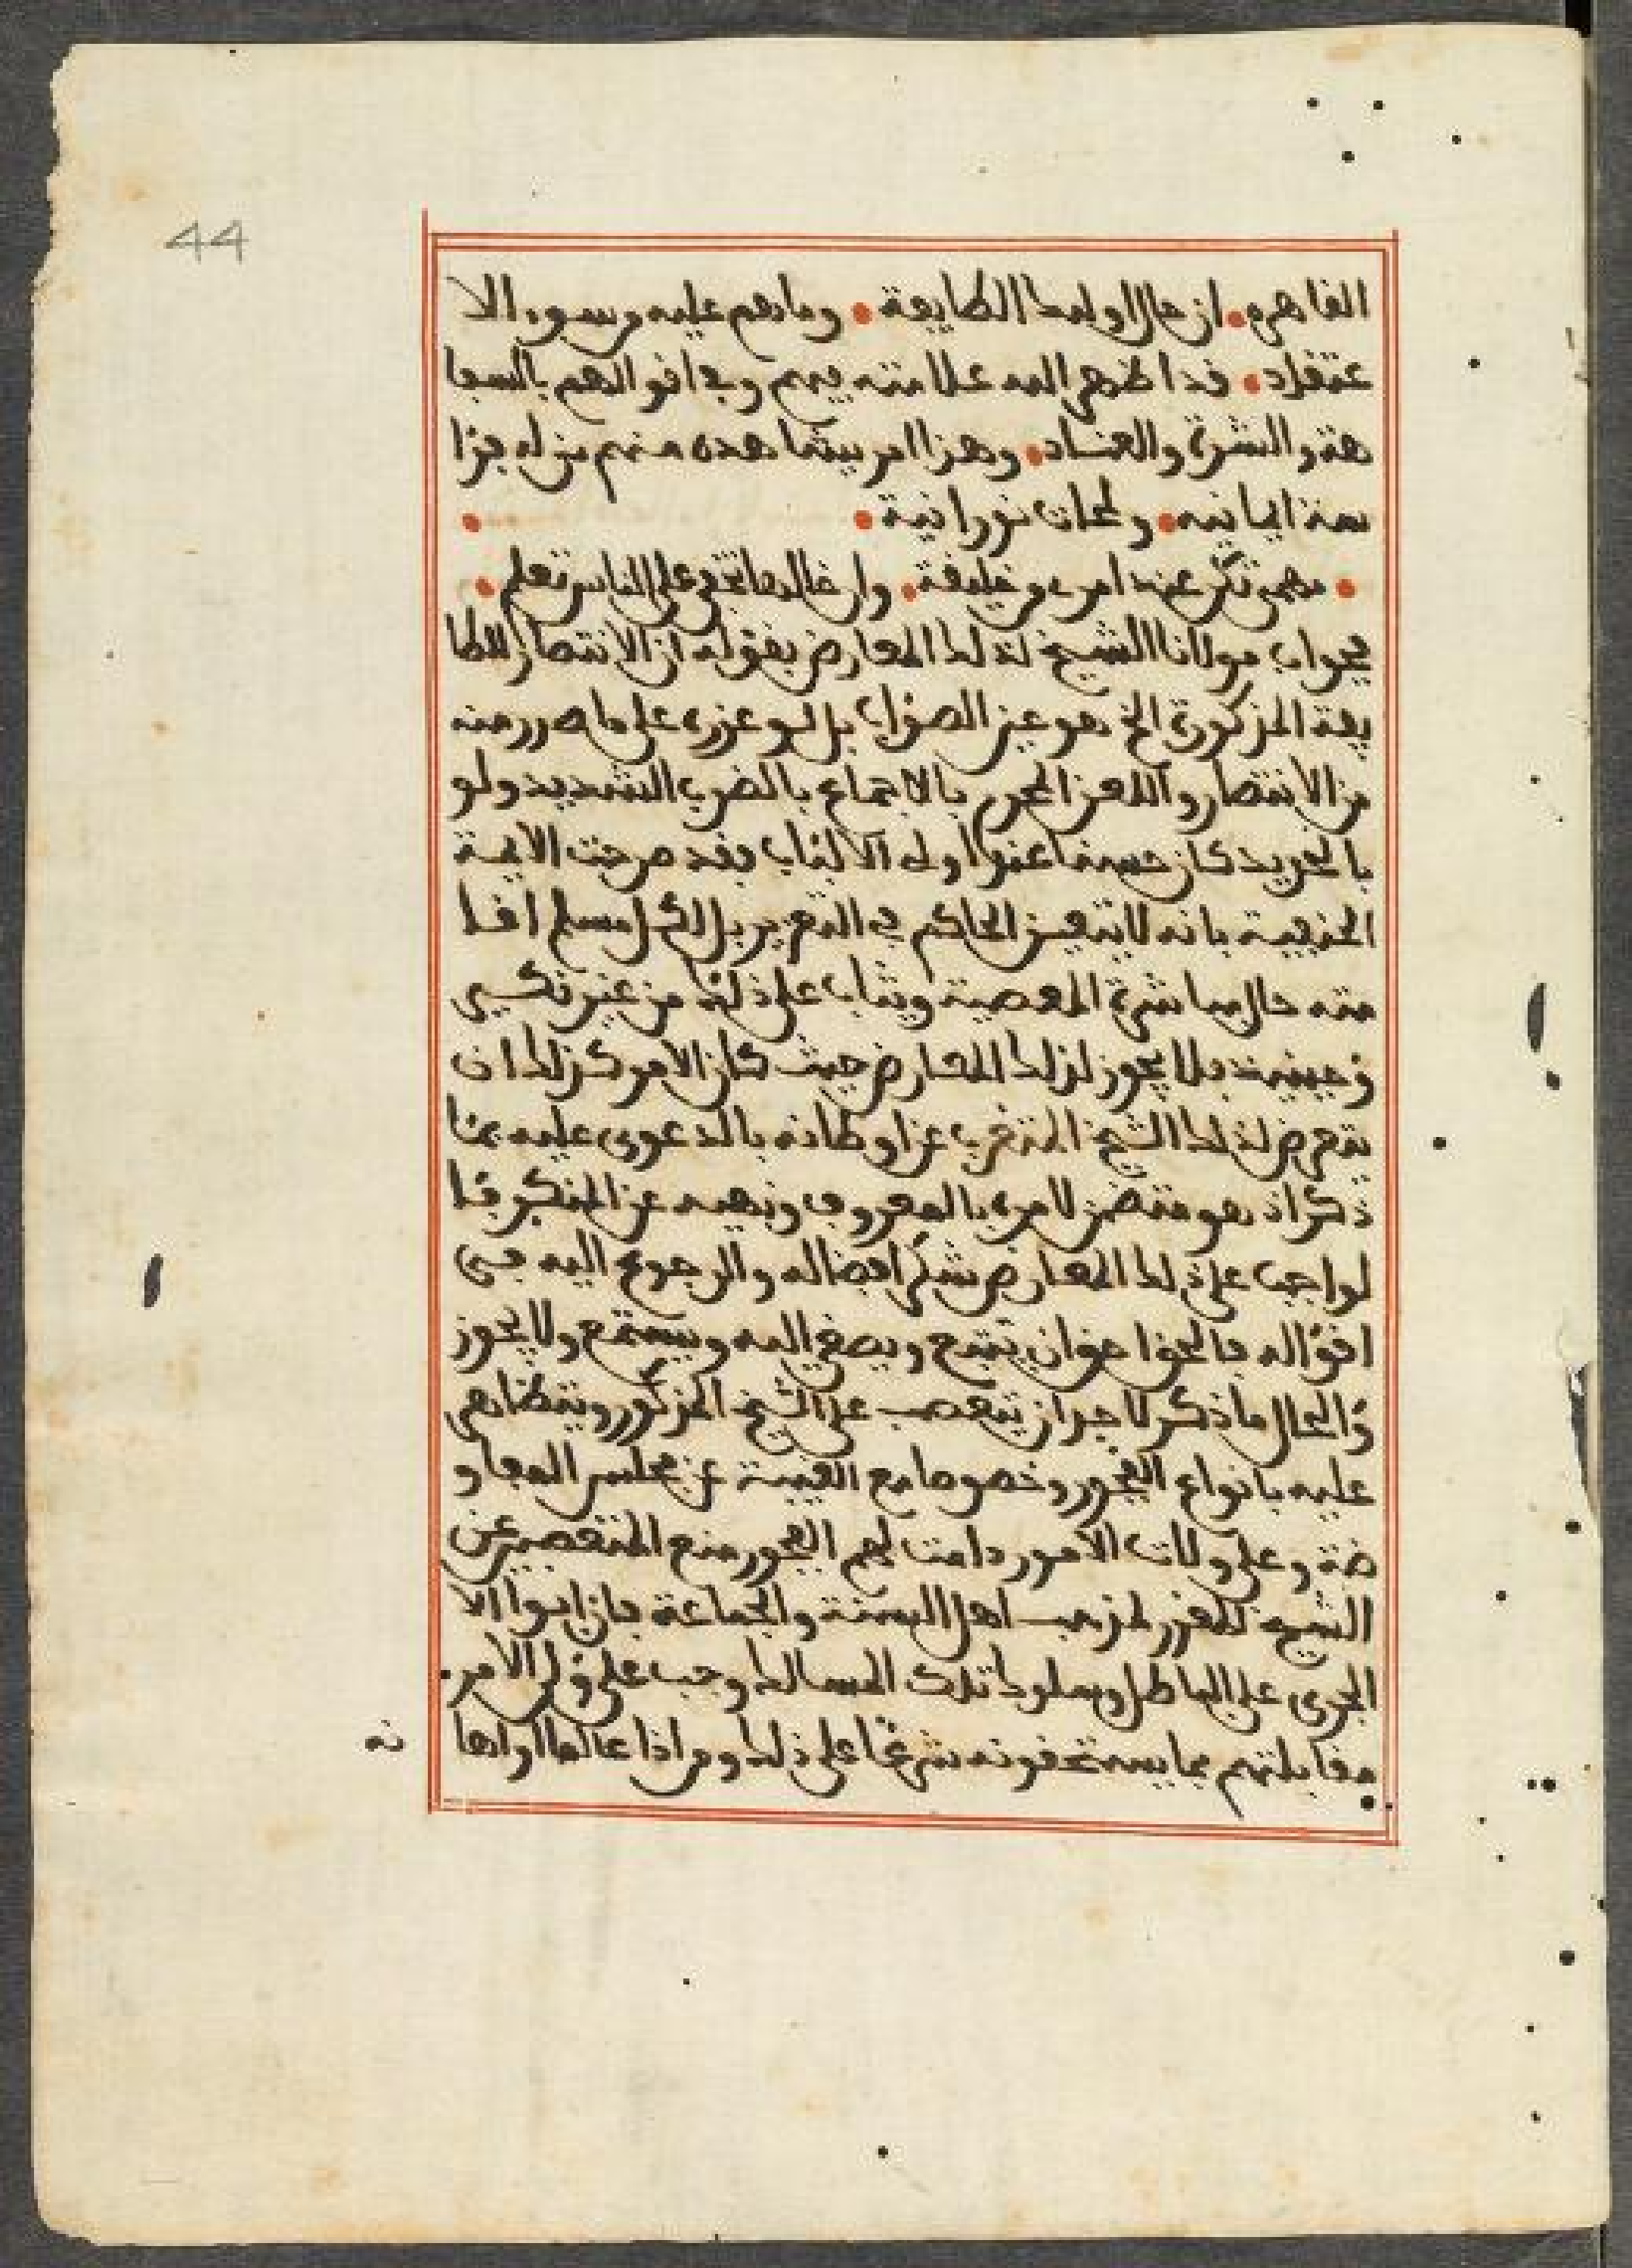 44
القاهره ان حال اوليك الطايفة وما هم عليه من سوء الا
عتقاد قد اظهر الله علامته فيهم وفي اقوالهم بالسفا
هة والشرة والعناد وهذا امر يشاهده منهم من له فرا
سة ايمانيه ولمحات نورانية
مهمى تكن عند امرء من خليقة وان خالها تخفى على الناس تعلم
فجواب مولانا الشيخ لذلك المعارض بقوله ان الانتصار للطا
يفة المذكورة الخ هو عين الصواب بل لو عزره على ما صدر منه
من الانتصار واللعن المحرم بالاجماع بالضرب الشديد ولو
بالحديد كان حسنا عند اولى الالباب فقد صرحت الايمة
الحنفية بانه لا يتعين الحاكم في التعزير بل لكل مسلم اقا
مته حال مباشرة المعصية ويثاب على ذلك من غير نكير
وحينيذ فلا يجوز لذلك المعارض حيث كان الامر كذلك ان
يتعرض لذلك الشيخ المتغرب عن اوطانه بالدعوى عليه بما
ذكر اذ هو متضمن لامره بالمعروف ونهيه عن المنكر فا
لواجب على ذلك المعارض شكر افضاله والرجوع الى
اقواله فالحق احق ان يتبع ويصغى اليه ويستمع ولا يجوز
والحال ما ذكر لاحد ان يتعصب على الشيخ المذكور ويتظاهر
عليه بانواع الفجور وخصوصا مع الغيبة عن مجلس المفاو
ضة وعلى ولات الامور دامت لهم منع المتعصبين عن
الشيخ المعزر لمذهب اهل السنة والجماعة فان ابوا الا
الجرى على الباطل وسلوك تلك المسالك وجب على ولى الامر
مقابلتهم بما يستحقونه شرعا على ذلك ومن اذا عالما او اها
نه